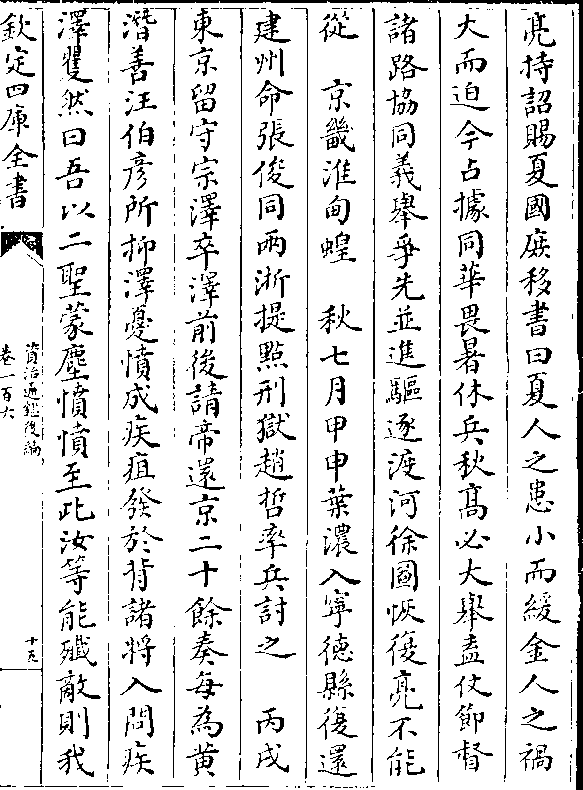 亮持詔賜夏國庶移書曰夏人之患小而緩金人之禍
大而迫今占據同華畏暑休兵秋高必大舉盍仗節督
諸路協同義舉爭先並進驅逐渡河徐圖恢復亮不能
從　京畿淮甸蝗　秋七月甲申葉濃入寧德縣復還
建州命張俊同兩浙提點刑獄趙哲率兵討之　丙戌
東京留守宗澤卒澤前後請帝還京二十餘奏每為黄
潛善汪伯彦所抑澤憂憤成疾疽發於背諸將入問疾
澤矍然曰吾以二聖蒙塵憤憤至此汝等能殲敵則我
欽定四庫全書
資治通鑑後編
卷一百六
十九